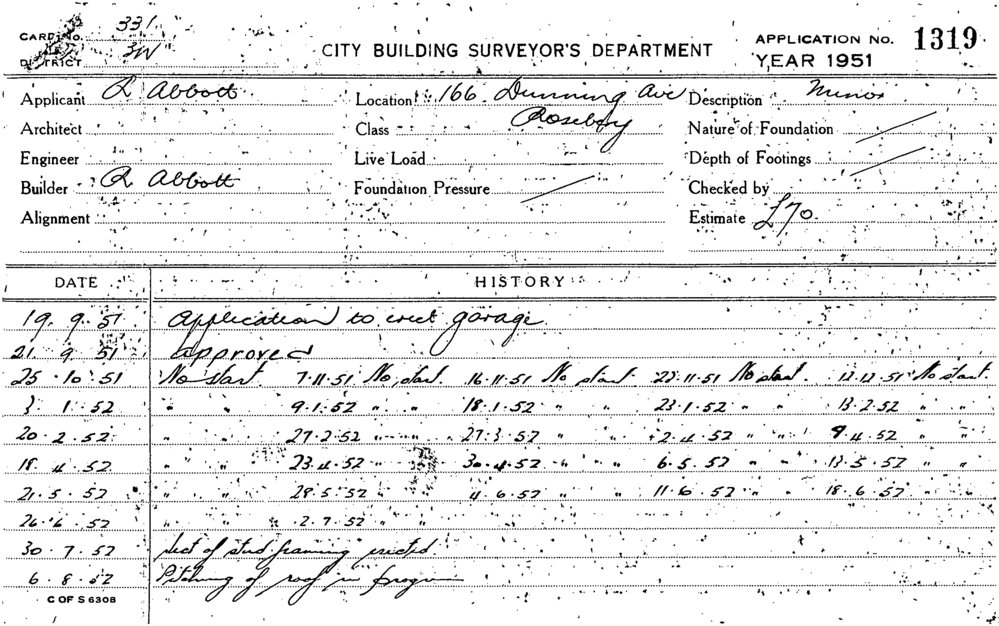 CARD No. 331.
DISTRICT 3W
CITY BUILDING SURVEYOR'S DEPARTMENT
APPLICATION No. 1319
YEAR 1951
Applicant R Abbott
Location 166 Dunning Ave
Rosebery
Description Minor
Architect
Class
Nature of Foundation
Engineer
Live Load
Depth of Footings
Builder R Abbott
Foundation Pressure
Checked by
Alignment
Estimate £70.
DATE HISTORY
19. 9. 51 Application to erect garage
21 9 51 approved
25 . 10 . 51 No start. 7.11.51 No start. 16.11.51 No start. 23.11.51 No start. 12.12.51 No start.
3 . 1 . 52 " " 9.1.52 " " 18.1.52 " " 23.1.52 " " 13.2.52 " "
20 . 2 . 52 " " 27.2.52 " " 27.3.52 " " 2.4.52 " " 9.4.52 " "
18 . 4 . 52 " " 23.4.52 " " 30.4.52 " " 6.5.52 " " 13.5.52 " "
21 . 5 . 52 " " 28.5.52 " " 4.6.52 " " 11.6.52 " " 18.6.52 " "
26 . 6 . 52 " " 2.7.52 " "
30 . 7 . 52 Sect of stud framing erected
6 . 8 . 52 Pitching of roof in progress
C OF S 6308